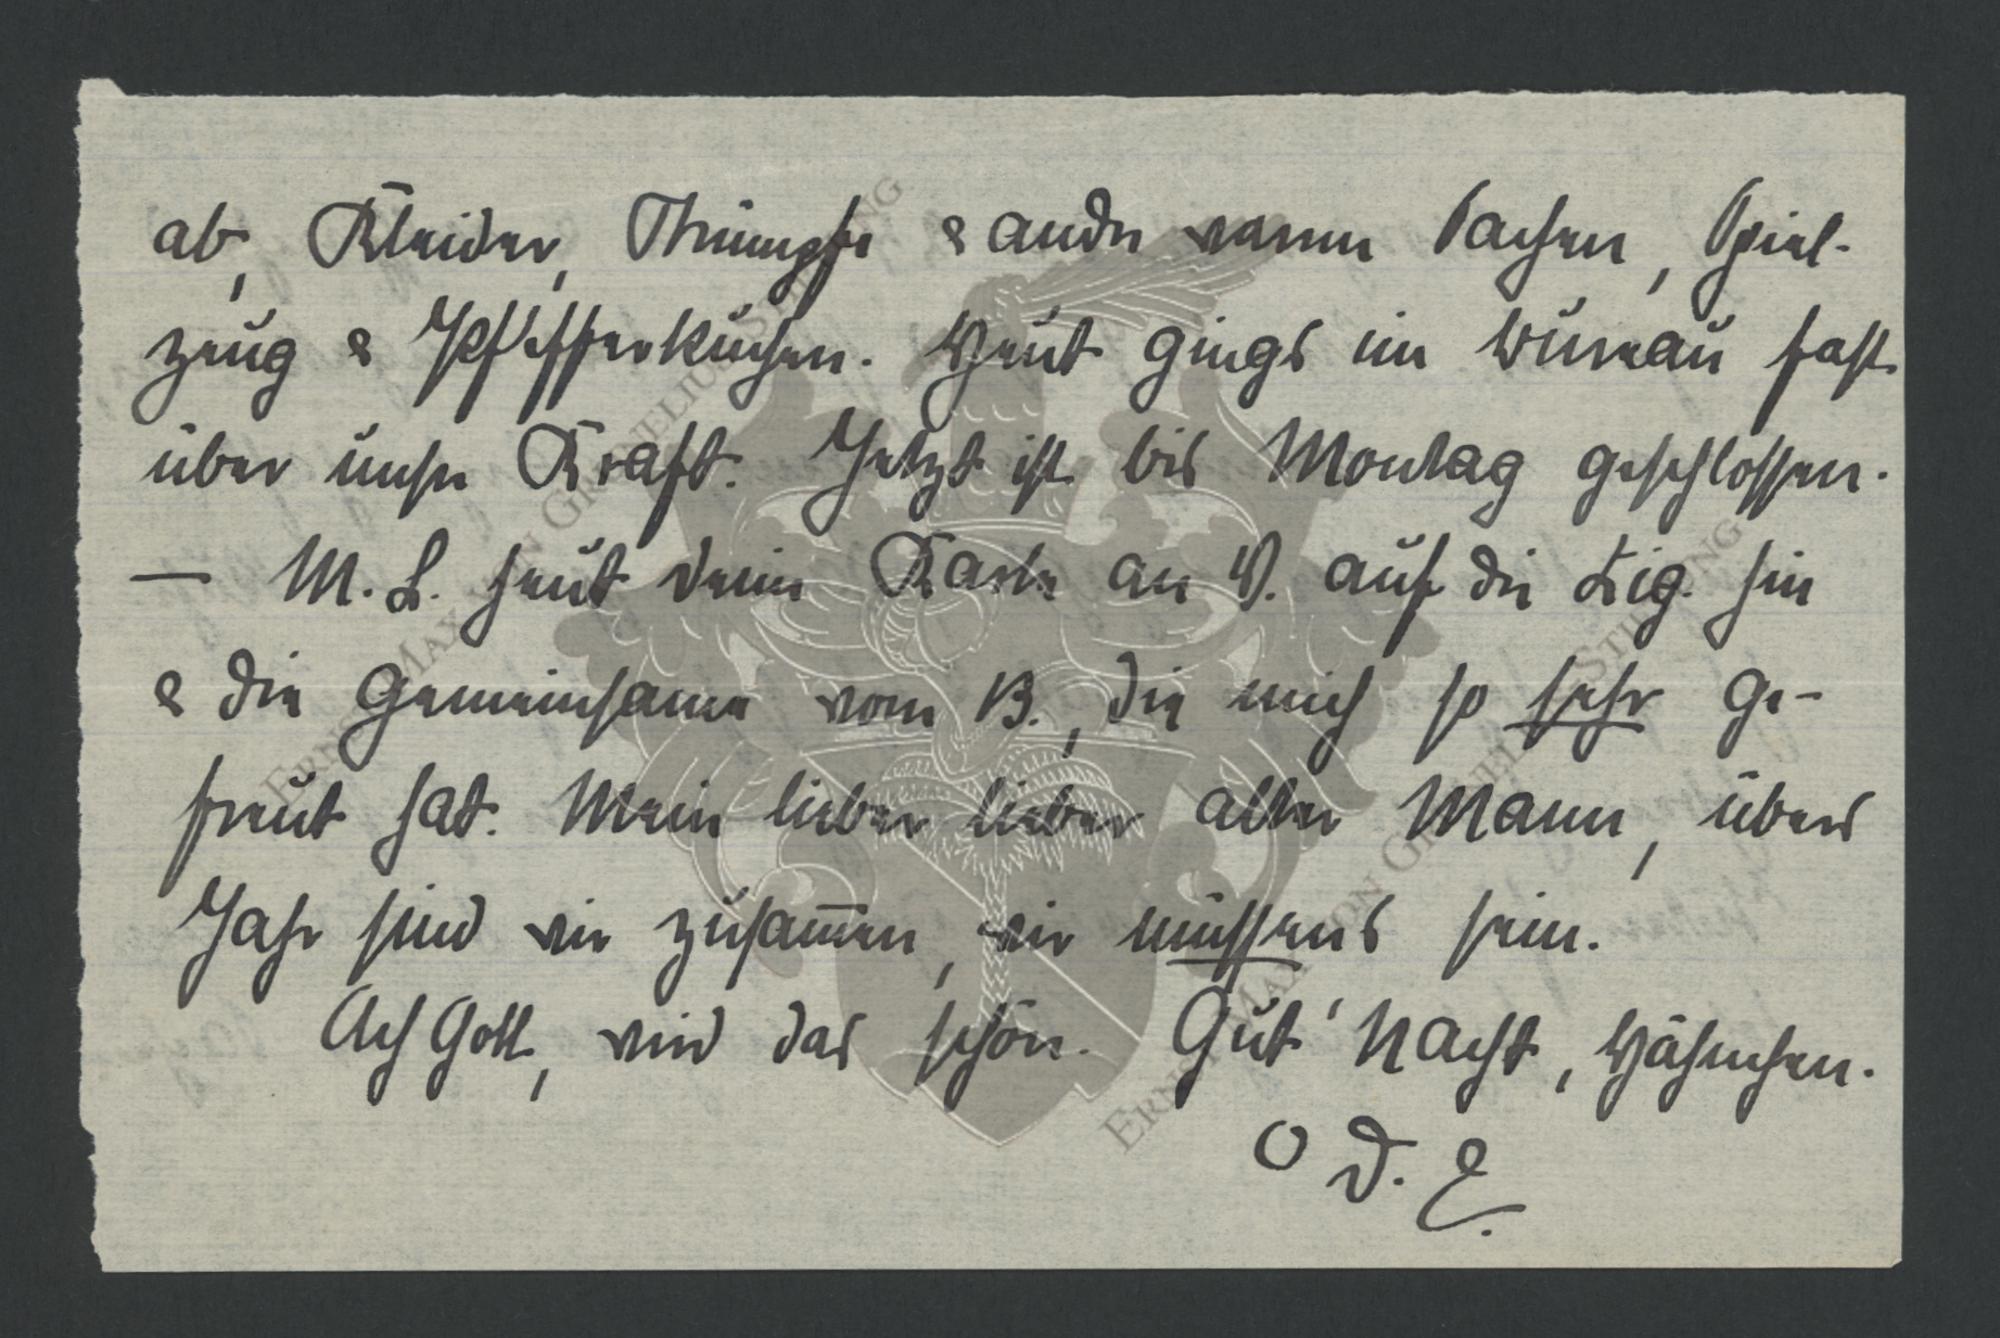 ab, Kleider, Strümpfe & andre warme Sachen, Spiel-
zeug & Pfefferkuchen. Heut gings im Bureau fast
über unsre Kraft. Jetzt ist bis Montag geschlossen.
— M. L. heut deine Karte an V. auf die Lzg. hin
& die Gemeinsame vom 13., die mich so sehr ge-
freut hat. Mein lieber lieber alter Mann, übers
Jahr sind wir zusam̅en, wir müssens sein.
Ach Gott, wird das schön. Gut' Nacht, Hähnchen.
O D. E.
ERNST MAX VON GRUNELIUS STIFTUNG
ERNST MAX VON GRUNELIUS STIFTUNG